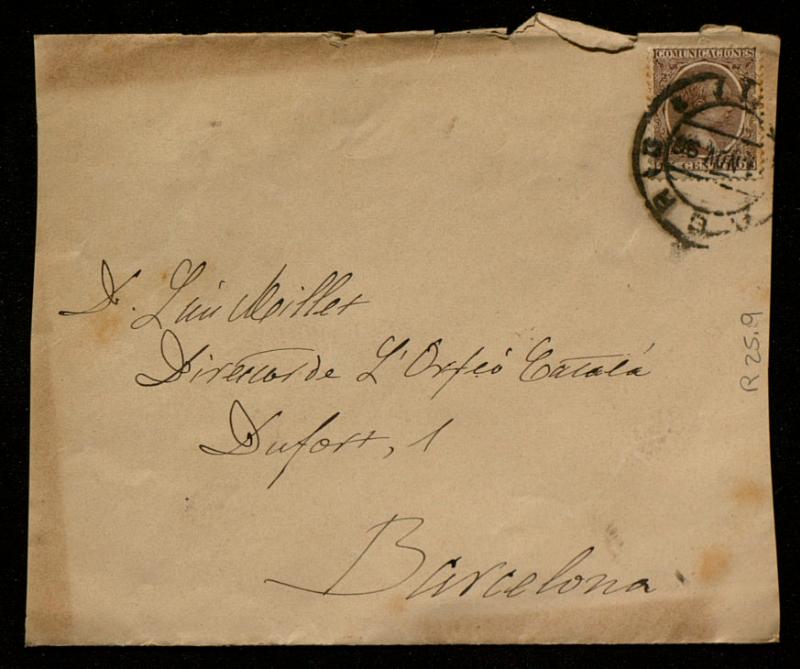 COMUNICACIONES
D. Lluis Millet
Director de L'Orfeó Català
Dufort, 1
Barcelona
R 25.9